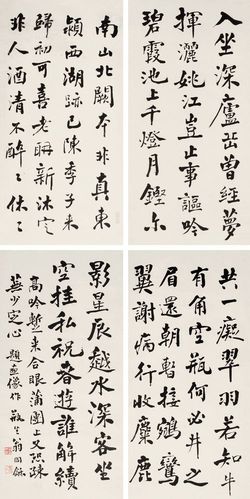 入坐深廬曾經夢
揮灑姚江豈止事謳吟
碧霞池上千燈月鏗尔
南山北闕本非真東
潁西湖跡已陳季子來
歸初可喜老聃新沐定
非人酒清不醉〻休〻
共一癡若知牛
有角空瓶何必井之
眉還朝暫接鵷鸞
翼謝病行收麋鹿
影星辰越水深客坐
空挂私祝春遊誰解續
高吟暫來合眼蒲團上又恐疎
蕪少定心 題畫像作 翁同龢